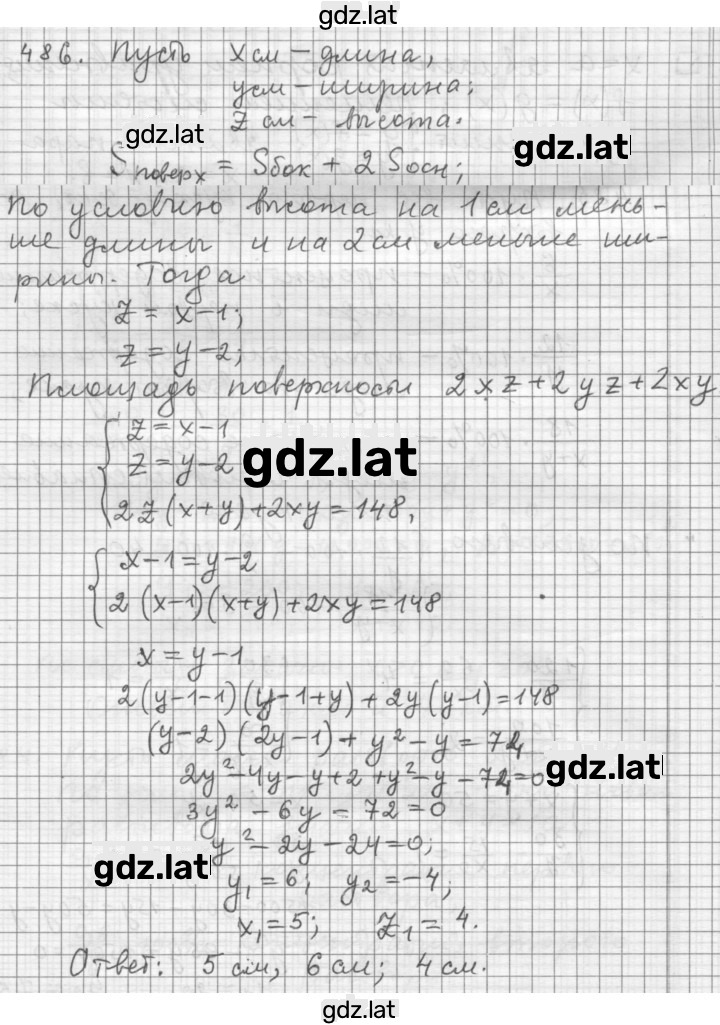 gdz.lat
486. Пусть x см – длина,
y см – ширина;
gdz.lat
z см – высота.
gdz.lat
Sповерх = Sбок + 2 Sосн;
По условию высота на 1 см мень-
ше длины и на 2 см меньше ши-
рины. Тогда
z = x-1;
z = y-2;
Площадь поверхносы 2xz+2yz+2xy
z = x-1
z = y-2
gdz.lat
2z(x+y)+2xy = 148,
x-1 = y-2
2(x-1)(x+y)+2xy = 148
x = y-1
2(y-1-1)(y-1+y) + 2y(y-1) = 148
(y-2)(2y-1) + y² - y = 74
2y² - 4y - y + 2 + y² - y - 74 = 0
gdz.lat
3y² - 6y - 72 = 0
y² - 2y - 24 = 0;
gdz.lat
y₁ = 6; y₂ = -4;
x₁ = 5; z₁ = 4.
Ответ: 5 см, 6 см; 4 см.
gdz.lat